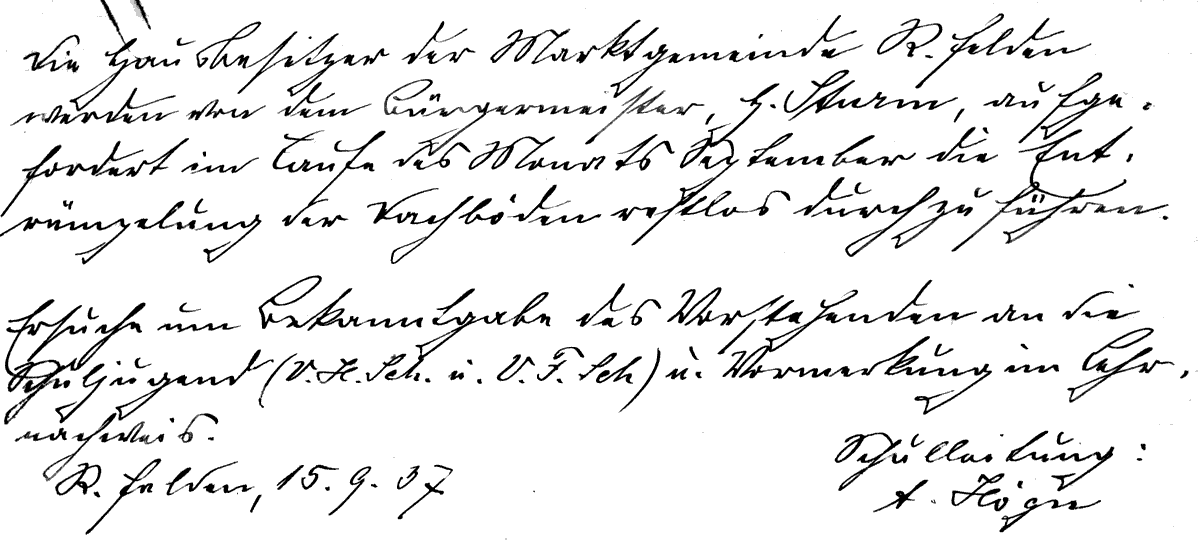 Die Hausbesitzer der Marktgemeinde R. felden
werden von dem Bürgermeister, H. Sturm, aufge-
fordert im Laufe des Monats September die Ent-
rümpelung der Dachböden restlos durchzuführen.
Ersuche um Bekanntgabe des Vorstehenden an die
Schuljugend (V. H. Sch. u. V. F. Sch) u. Vormerkung im Lehr-
nachweis.
R. felden, 15. 9. 37
Schulleitung:
A. Högn